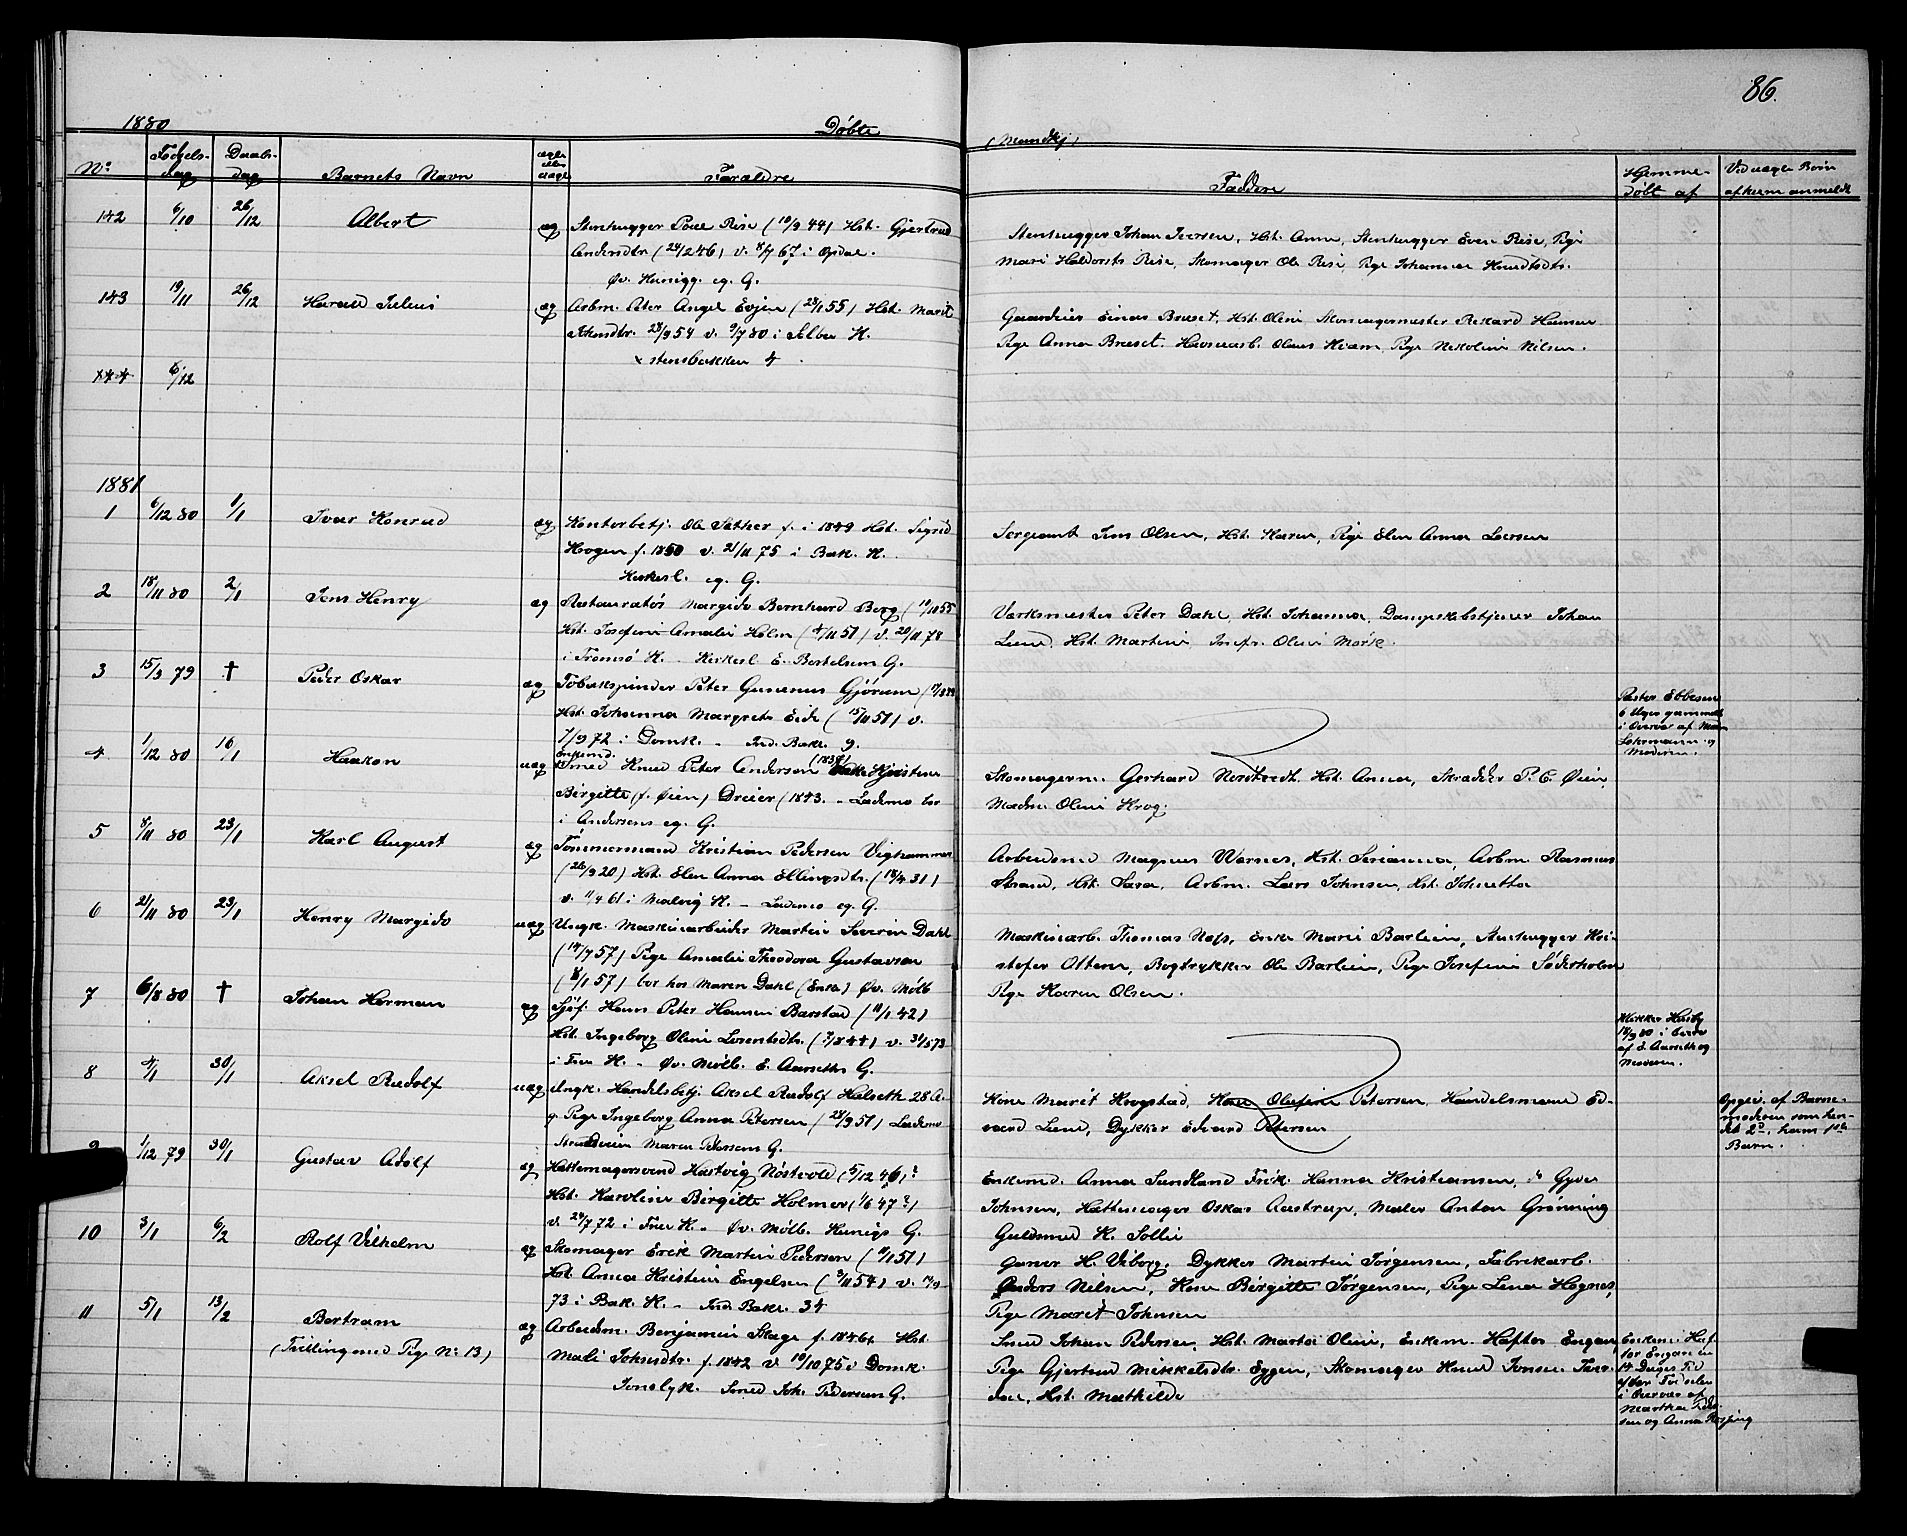 86.
1880
Døbte
(Mandkj)
No
Fødsels-
dag
Daabs-
dag
Barnets Navn
ægte
eller
uægte
Forældre
Faddere
Hjemme-
døbt af
Ved uægte Børn
af hvem anmeldt
142 6/10 26/12 Albert æg Stenhugger Poul Rise (10/9 44) Hst. Gjertrud
Andersdtr (24/2 46) v. 8/7 67 i Opdal.
Øv. eg. G.
Stenhugger Johan Iversen, Hst. Anna, Stenhugger Even Rise, Pige
Mari Haldorsts Rise, Skomager Ole Rise, Pige Johanna Knudtsdtr.
143 19/11 26/12 Harald Julius æg Arbm. Peter Angel Evjen (23/1 55) Hst. Marit
Johnsdtr. 23/9 54 v. 9/7 80 i Selbu K.
stensbakken 4
Gaardeier Einar Bruset, Hst. Oline Skomagermester Rikard Hansen
Pige Anna Bruset. Olaus Pige Nikoline Nilsen.
144 6/12
1881
1 6/12 80 1/1 Ivar Konrad æg Kontorbetj. Ole Sæther f. i 1849 Hst. Sigrid
Hoogen f. 1850 v. 21/11 75 i Bak. K.
Kirkesl. eg. G.
Sergeant Jens Olsen, Hst. Karen, Pige Elen Anna Larsen
2 18/11 80 2/1 Jens Henry æg Restauratør Margido Bernhard Berg (19/10 55
Hst. Josefine Amalie Holm (4/11 51) v. 20/11 78
i Tromsø K. Kirkesl. E. Bertelsen G.
Værksmester Peter Dahl, Hst. Johanna, Dampskibstjener Johan
Lund, Hst. Martine, Jnsfr. Oline Mørk.
3 15/3 79 † Peder Oskar æg Tobakspinder Peter Gunerius Gjørum
Hst. Johanna Margrete Eide (15/11 51) v.
1/9 72 i Domk. Ind. Bakl. 9.
Pastor Ebbesen
6 Uger gammel
i Overvær af
Lehrmann og
Moderen.
4 1/12 80 16/1 Haakon uæg Enkemd. Smed Knud Peter Andersen (1837) Enke Kjerstine
Birgitte (f. Øien) Dreier (1843. Lademo bor
i Andersens eg. G.
Skomagerm. Gerhard Nordtvedt, Hst. Anna, Skrædder P. C. Øien,
Madme Oline Krog.
5 8/11 80 23/1 Karl August æg Tømmermand Kristian Pedersen Vighammer
(26/9 20) Hst. Elen Anna Ellingsdtr. (18/4 31)
v. 11/4 61 i Malvig K. Lademo eg. G.
Arbeidsmd Magnus Warnes, Hst. Serianna, Arbm. Rasmus
Strand, Hst. Sara, Arbm. Lars Johnsen, Hst. Johnetha
6 21/11 80 23/1 Henry Margido uæg Ungk. Maskinarbeider Martin Severin Dahl
(14/7 57) Pige Amalie Theodora Gustavsen
(8/1 57) bor hos Maren Dahl (Enke) Øv. Mølb
Maskinarb. Thomas Næss, Enke Marie Barlien, Stenhugger Kri-
stofer Olsen, Bogtrykker Ole Barlien, Pige Josefine Søderholm
Pige Karen Olsen.
7 6/8 80 † Johan Herman æg Sjøf. Hans Peter Hansen Barstad (11/1 42)
Hst. Ingeborg Oline Lorentsdtr. (7/8 44) v. 31/5 73
i Frue K. Øv. Mølb. E. Aarseths G.
Klokker Husby
18/9 80 i Overv.
af E. Aarseth og
Moderen.
8 4/1 30/1 Aksel Rudolf uæg Ungk. Handelsbetj. Aksel Rudolf Halseth 28 A.
g. Pige Ingeborg Anna Petersen (23/9 51) Lademo
Maren Petersens G.
Kone Marit Krogstad, Kone Olufine Petersen, Handelsmand Ed-
vard Lund, Dykker Edvard Petersen
Opgiv. af Barne-
moderen som hen-
des 2d, hans 1ste
Barn.
9 1/12 79 30/1 Gustav Adolf æg Hattemagersvend Hartvig Nøstvold (5/12 46)?
Hst. Karoline Birgitte Holmer (1/6 47?)
v. 24/7 72 i Frue K. Øv. Mølb. Hennigs G.
Enkemd. Anna Sundland Frøk. Hanna Kristiansen, do Gyda
Johnsen, Hattemager Oskar Aastrup, Maler Anton Grønning
Guldsmed K. Sollie
10 3/1 6/2 Rolf Vilhelm æg Skomager Erik Martin Pedersen (9/1 51)
Hst. Anna Kristine Engelsen (3/11 54) v. 14/9
73 i Bak. K. Ind. Bakl. 34
Garver H. Viborg, Dykker Martin Jørgensen, Fabrikarb.
Anders Nilsen, Kone Birgitte Jørgensen, Pige Lena Hognes,
Pige Marit Johnsen
11 5/1 13/2 Bertram
(Trilling med Pige No 13) æg Arbeidsm. Benjamin Skage f. 1846, Hst.
Mali Johnsdtr. f. 1842 v. 10/10 75 v Domk.
Jonslyk. Smed Joh. Pedersens G.
Smed Johan Pedersen, Hst. Martha Oline, Enkem. Hafter Engan,
Pige Gjertrud Mikkelsdtr. Eggen, Skomager Knud Jonsen
Hst. Mathilde
Enkem. Haf-
tor Engan en
14 Dages Tid
efter Fødselen
i Overvær af
Martha Peder-
sen og Anna Røsbing